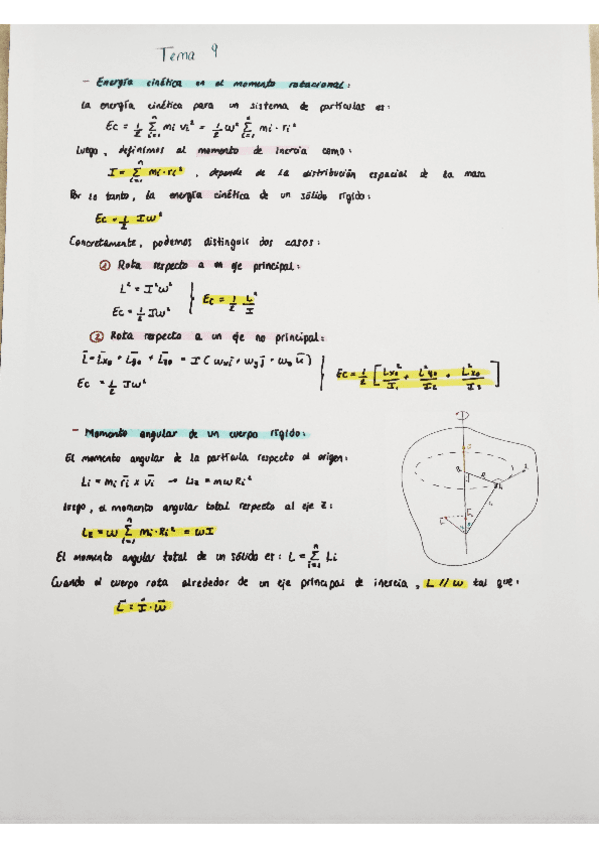 Tema 9
- Energía cinética en el momento rotacional:
La energía cinética para un sistema de partículas es:
Ec = 1/2 Σ(i=1→n) mi vi² = 1/2 ω² Σ(i=1→n) mi · ri²
Luego, definimos al momento de inercia como:
I = Σ(i=1→n) mi · ri², depende de la distribución espacial de la masa
Por lo tanto, la energía cinética de un sólido rígido:
Ec = 1/2 Iω²
Concretamente, podemos distinguir dos casos:
① Rota respecto a un eje principal:
L² = I²ω²
Ec = 1/2 Iω² } Ec = 1/2 L²/I
② Rota respecto a un eje no principal:
L̄ = L̄x₀ + L̄y₀ + L̄z₀ = I (ωx ī + ωy j̄ + ωz k̄)
Ec = 1/2 Iω² } Ec = 1/2 [Lx₀²/I₁ + L²y₀/I₂ + Lz₀²/I₃]
- Momento angular de un cuerpo rígido:
El momento angular de la partícula respecto al origen:
Li = mi r̄i x v̄i → Liz = mωRi²
Luego, el momento angular total respecto al eje z:
Lz = ω Σ(i=1→n) mi · Ri² = ωI
El momento angular total de un sólido es: L = Σ(i=1→n) Li
Cuando el cuerpo rota alrededor de un eje principal de inercia, L // ω tal que:
L̄ = I · ω̄